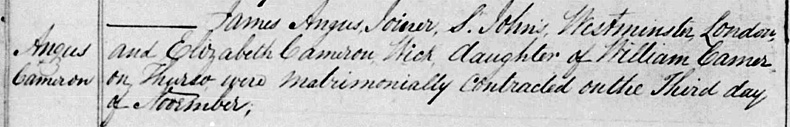 James Angus, Joiner, St. John's, Westminster, London,
Angus
Cameron
and Elizabeth Cameron, Wick, daughter of William Camer-
on, Thurso were matrimonially contracted on the Third day
of November;